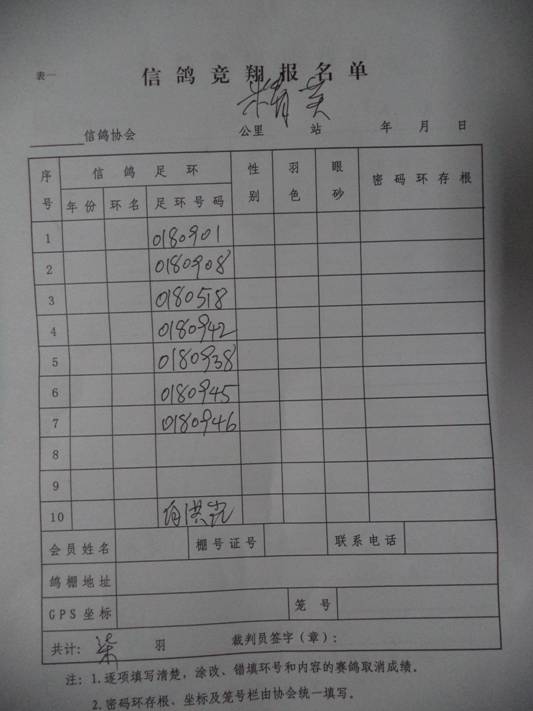 表一
信鸽竞翔报名单
精英
信鸽协会 公里 站 年 月 日
序号 信鸽足环 性别 羽色 眼砂 密码环存根
年份 环名 足环号码
1 0180901
2 0180908
3 0180518
4 0180942
5 0180938
6 0180945
7 0180946
8
9
10
会员姓名 棚号证号 联系电话
鸽棚地址
GPS坐标 笼号
共计: 柒 羽 裁判员签字(章):
注: 1.逐项填写清楚,涂改、错填环号和内容的赛鸽取消成绩。
2.密码环存根、坐标及笼号栏由协会统一填写。